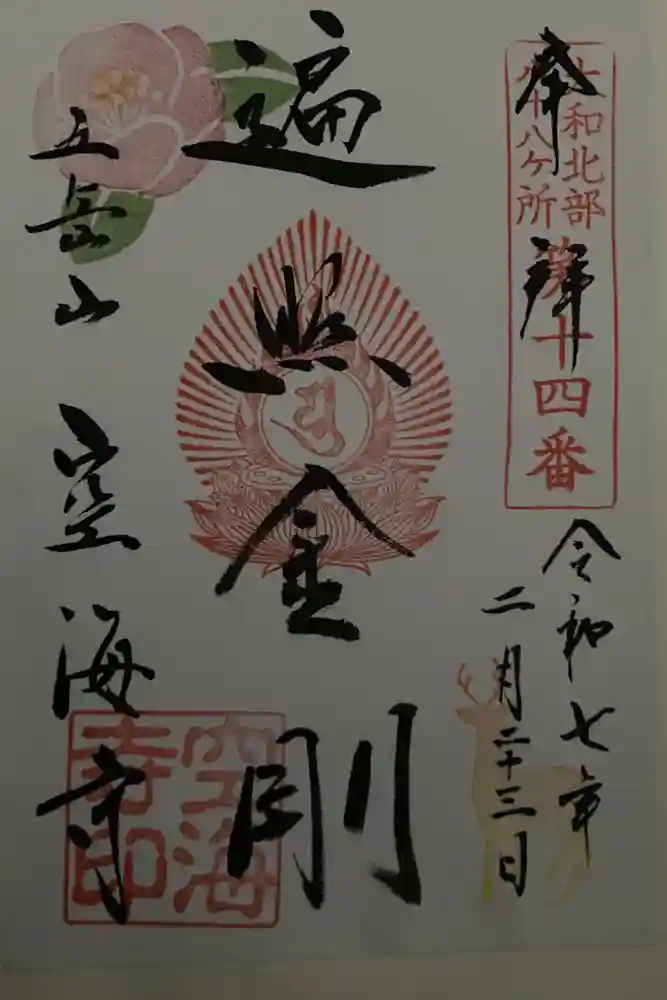 奉拝
大和北部
八十八ヶ所
第十四番
令和七年
二月二十三日
遍照金剛
五岳山
空海寺
空海
寺印